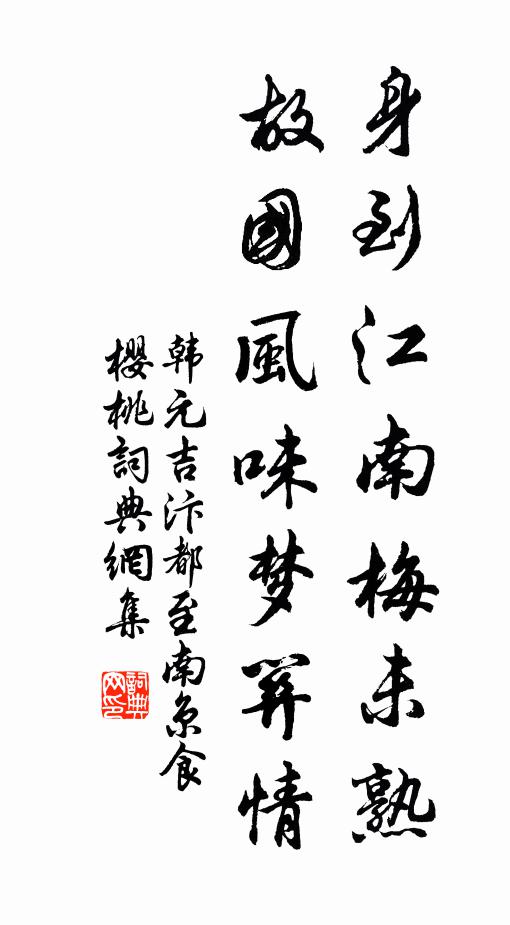 身到江南梅未熟
故國風味梦関情
韩元吉汴都至南京食
櫻桃詞典網集
詞典
网印